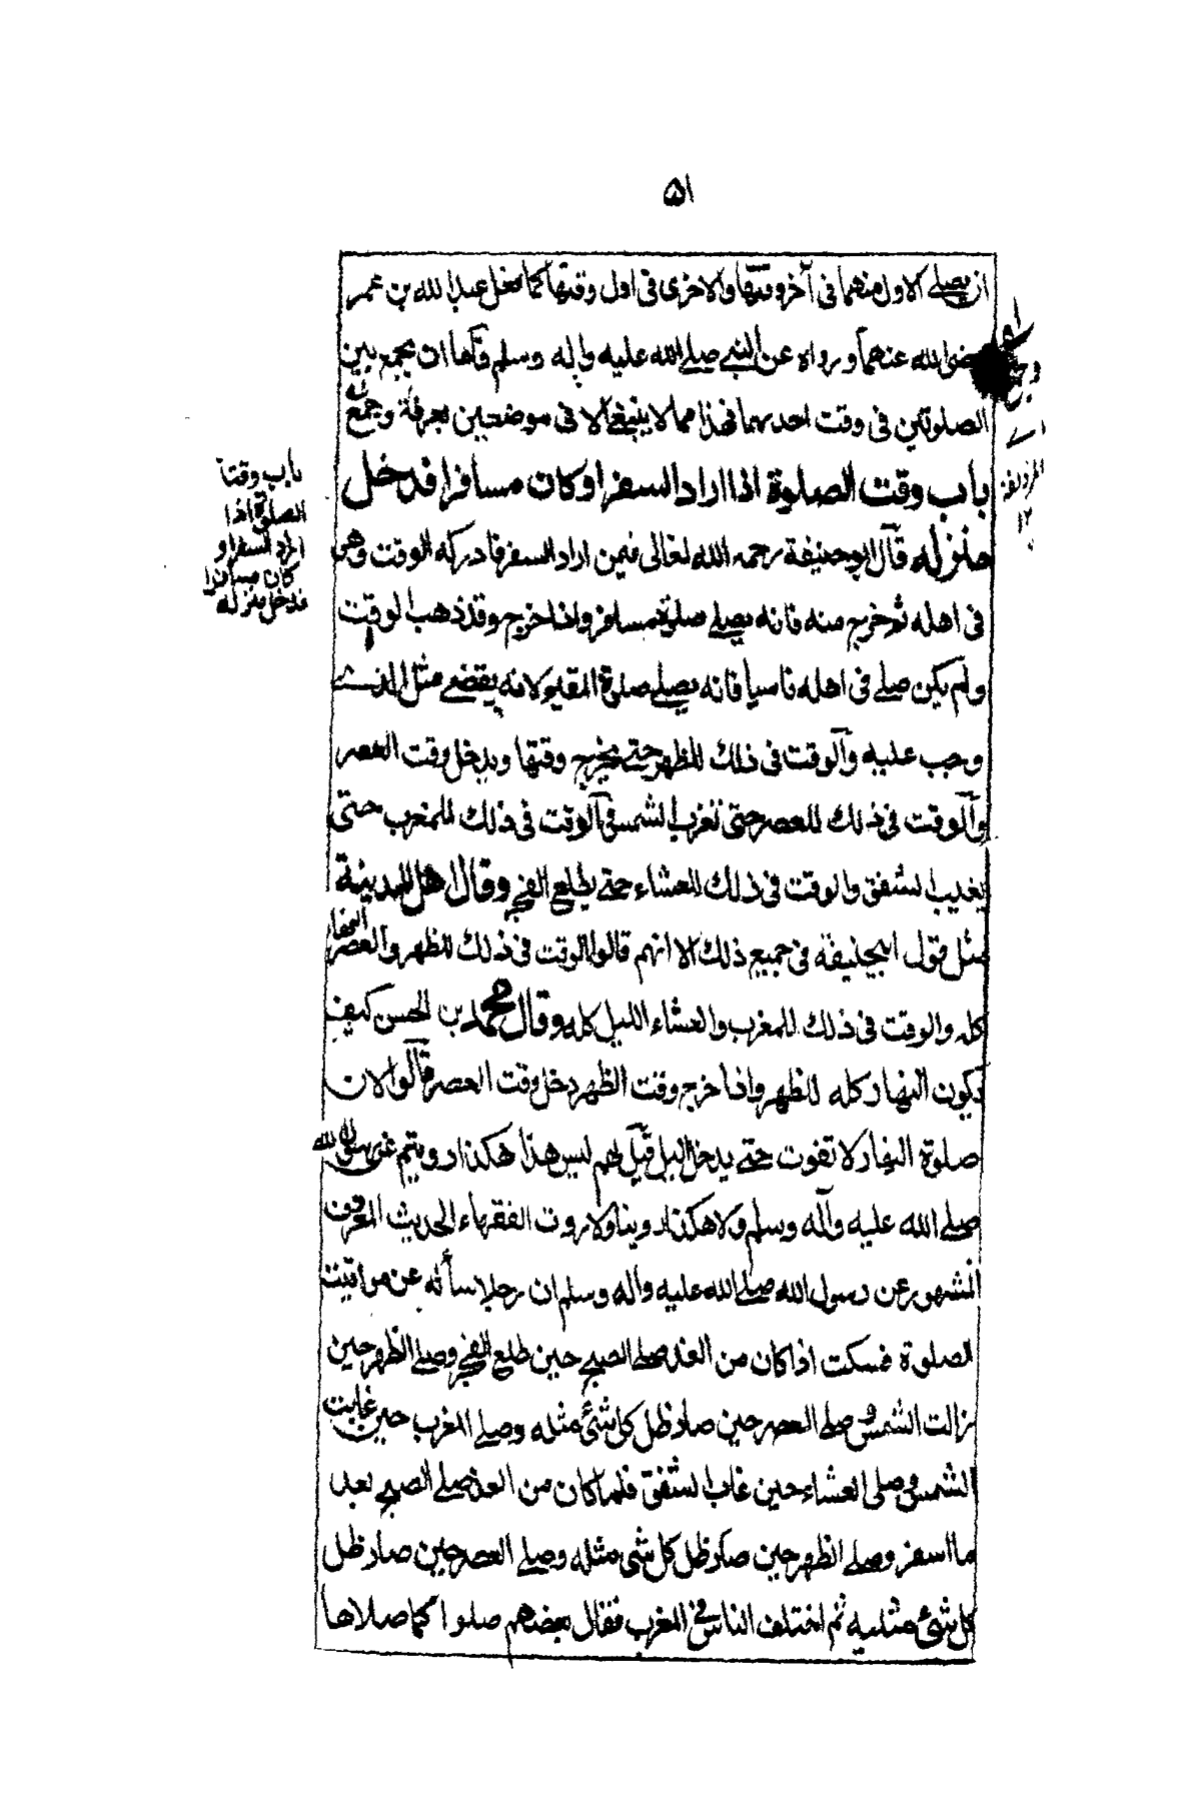 ۵۱
ان يصلے الاول منهما فى آخر وقتها والاخرى فى اول وقتها كما فعل عبد الله بن عمر
رضى الله عنهما ورواه عن النبے صلے الله عليه واٰله وسلم وآما ان يجمع بين
الصلوتين فى وقت احدىهما فهذا مما لا ينبغے الا فى موضعين بعرفة وجمع
باب وقت الصلوة اذا اراد السفر او كان مسافرا فدخل
منزله قآل ابوحنيفة رحمه الله تعالى فيمن اراد السفر فادركه الوقت وهو
فى اهله ثم خرج منه فانه يصلے صلوة مسافر واذا خرج وقد ذهب الوقت
ولم يكن صلے فى اهله ناسيا فانه يصلے صلوة المقيم لانه يقضے مثل الذے
وجب عليه وآلوقت فى ذلك للظهر حتے يخرج وقتها ويدخل وقت العصر
وآلوقت فى ذلك للعصر حتى تغرب الشمس وآلوقت فى ذلك للمغرب حتى
يغيب الشفق والوقت فى ذلك للعشاء حتے يطلع الفجر وقال اهل المدينة
مثل قول ابيحنيفة فى جميع ذلك الا انهم قالوا الوقت فى ذلك للظهر والعصر النهار
كله والوقت فى ذلك للمغرب والعشاء الليل كله وقال محمد بن الحسن كيف
يكون النهار كله للظهر واذا خرج وقت الظهر دخل وقت العصر قآلوا لان
صلوة النهار لا تفوت حتے يدخل الليل قيل لهم ليس هذا هكذا رويتم عن رسول الله
صلے الله عليه وآله وسلم ولا هكذا روينا ولا روت الفقهاء الحديث المعروف
المشهور عن رسول الله صلے الله عليه واٰله وسلم ان رجلا سأله عن مواقيت
الصلوة فسكت اذا كان من الغد صلے الصبح حين طلع الفجر وصلے الظهر حين
زالت الشمس و صلے العصر حين صار ظل كل شئ مثله وصلے المغرب حين غابت
الشمس وصلى العشاء حين غاب الشفق فلما كان من الغد صلے الصبح بعد
ما اسفر وصلے الظهر حين صار ظل كل شى مثله وصلے العصر حين صار ظل
كل شئ مثليه ثم اختلف الناس فى المغرب فقال بعضهم صلوا كما صلاها
باب وقت
الصلوة اذا
اراد السفر او
كان مسافرا
فدخل منزله